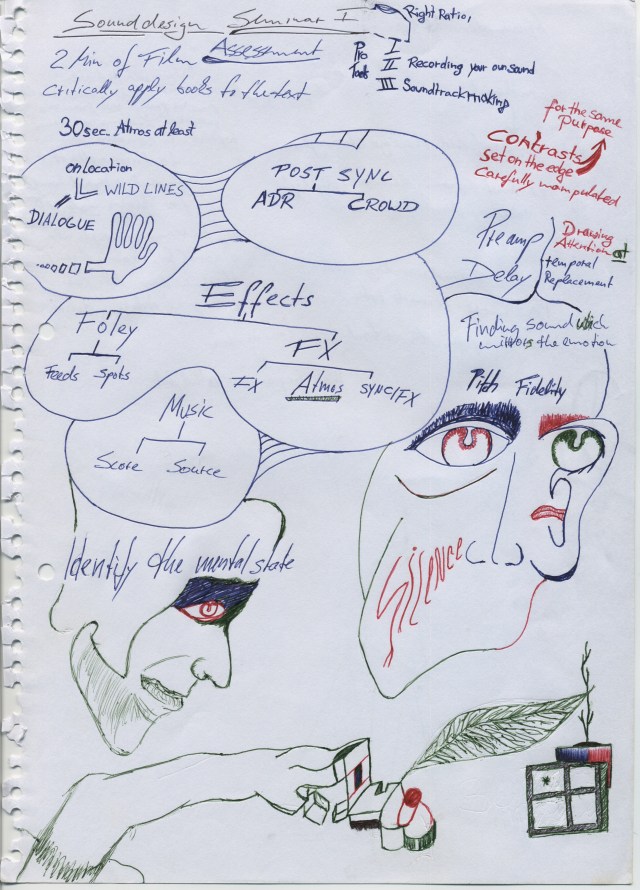 Sounddesign Seminar I
Right Ratio,
2 Min of Film Assessment
Pro Tools
I
II Recording your ownsound
III Soundtrackmaking
critically apply books to the text
30sec. Atmos at least
for the same
purpose
contrasts
set on the edge
carefully manipulated
on Location
WILD LINES
DIALOGUE
POST SYNC
ADR CROWD
Preamp
Delay
Drawing
Attention at
temporal
Replacement
Effects
Foley
Feeds Spots
FX
FX Atmos SYNC/FX
Finding sound which
mirrors the emotion
Pitch Fidelity
Music
Score Source
Silence
Identify the mental state